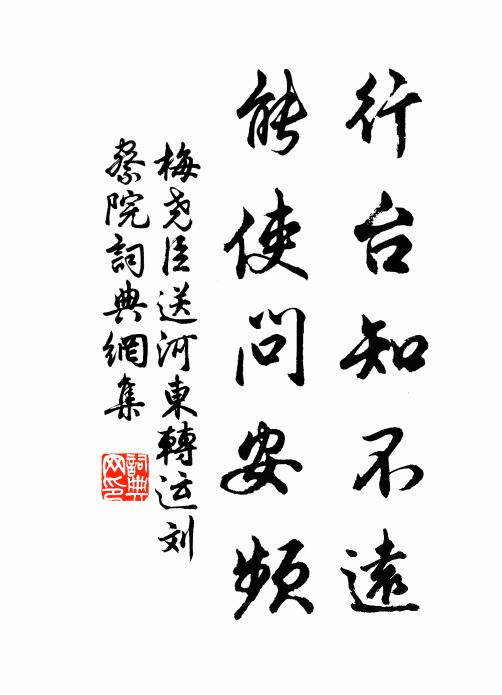 行台知不遠
能使問安頻
梅尧臣送河東轉运刘
察院詞典網集
詞典
网印